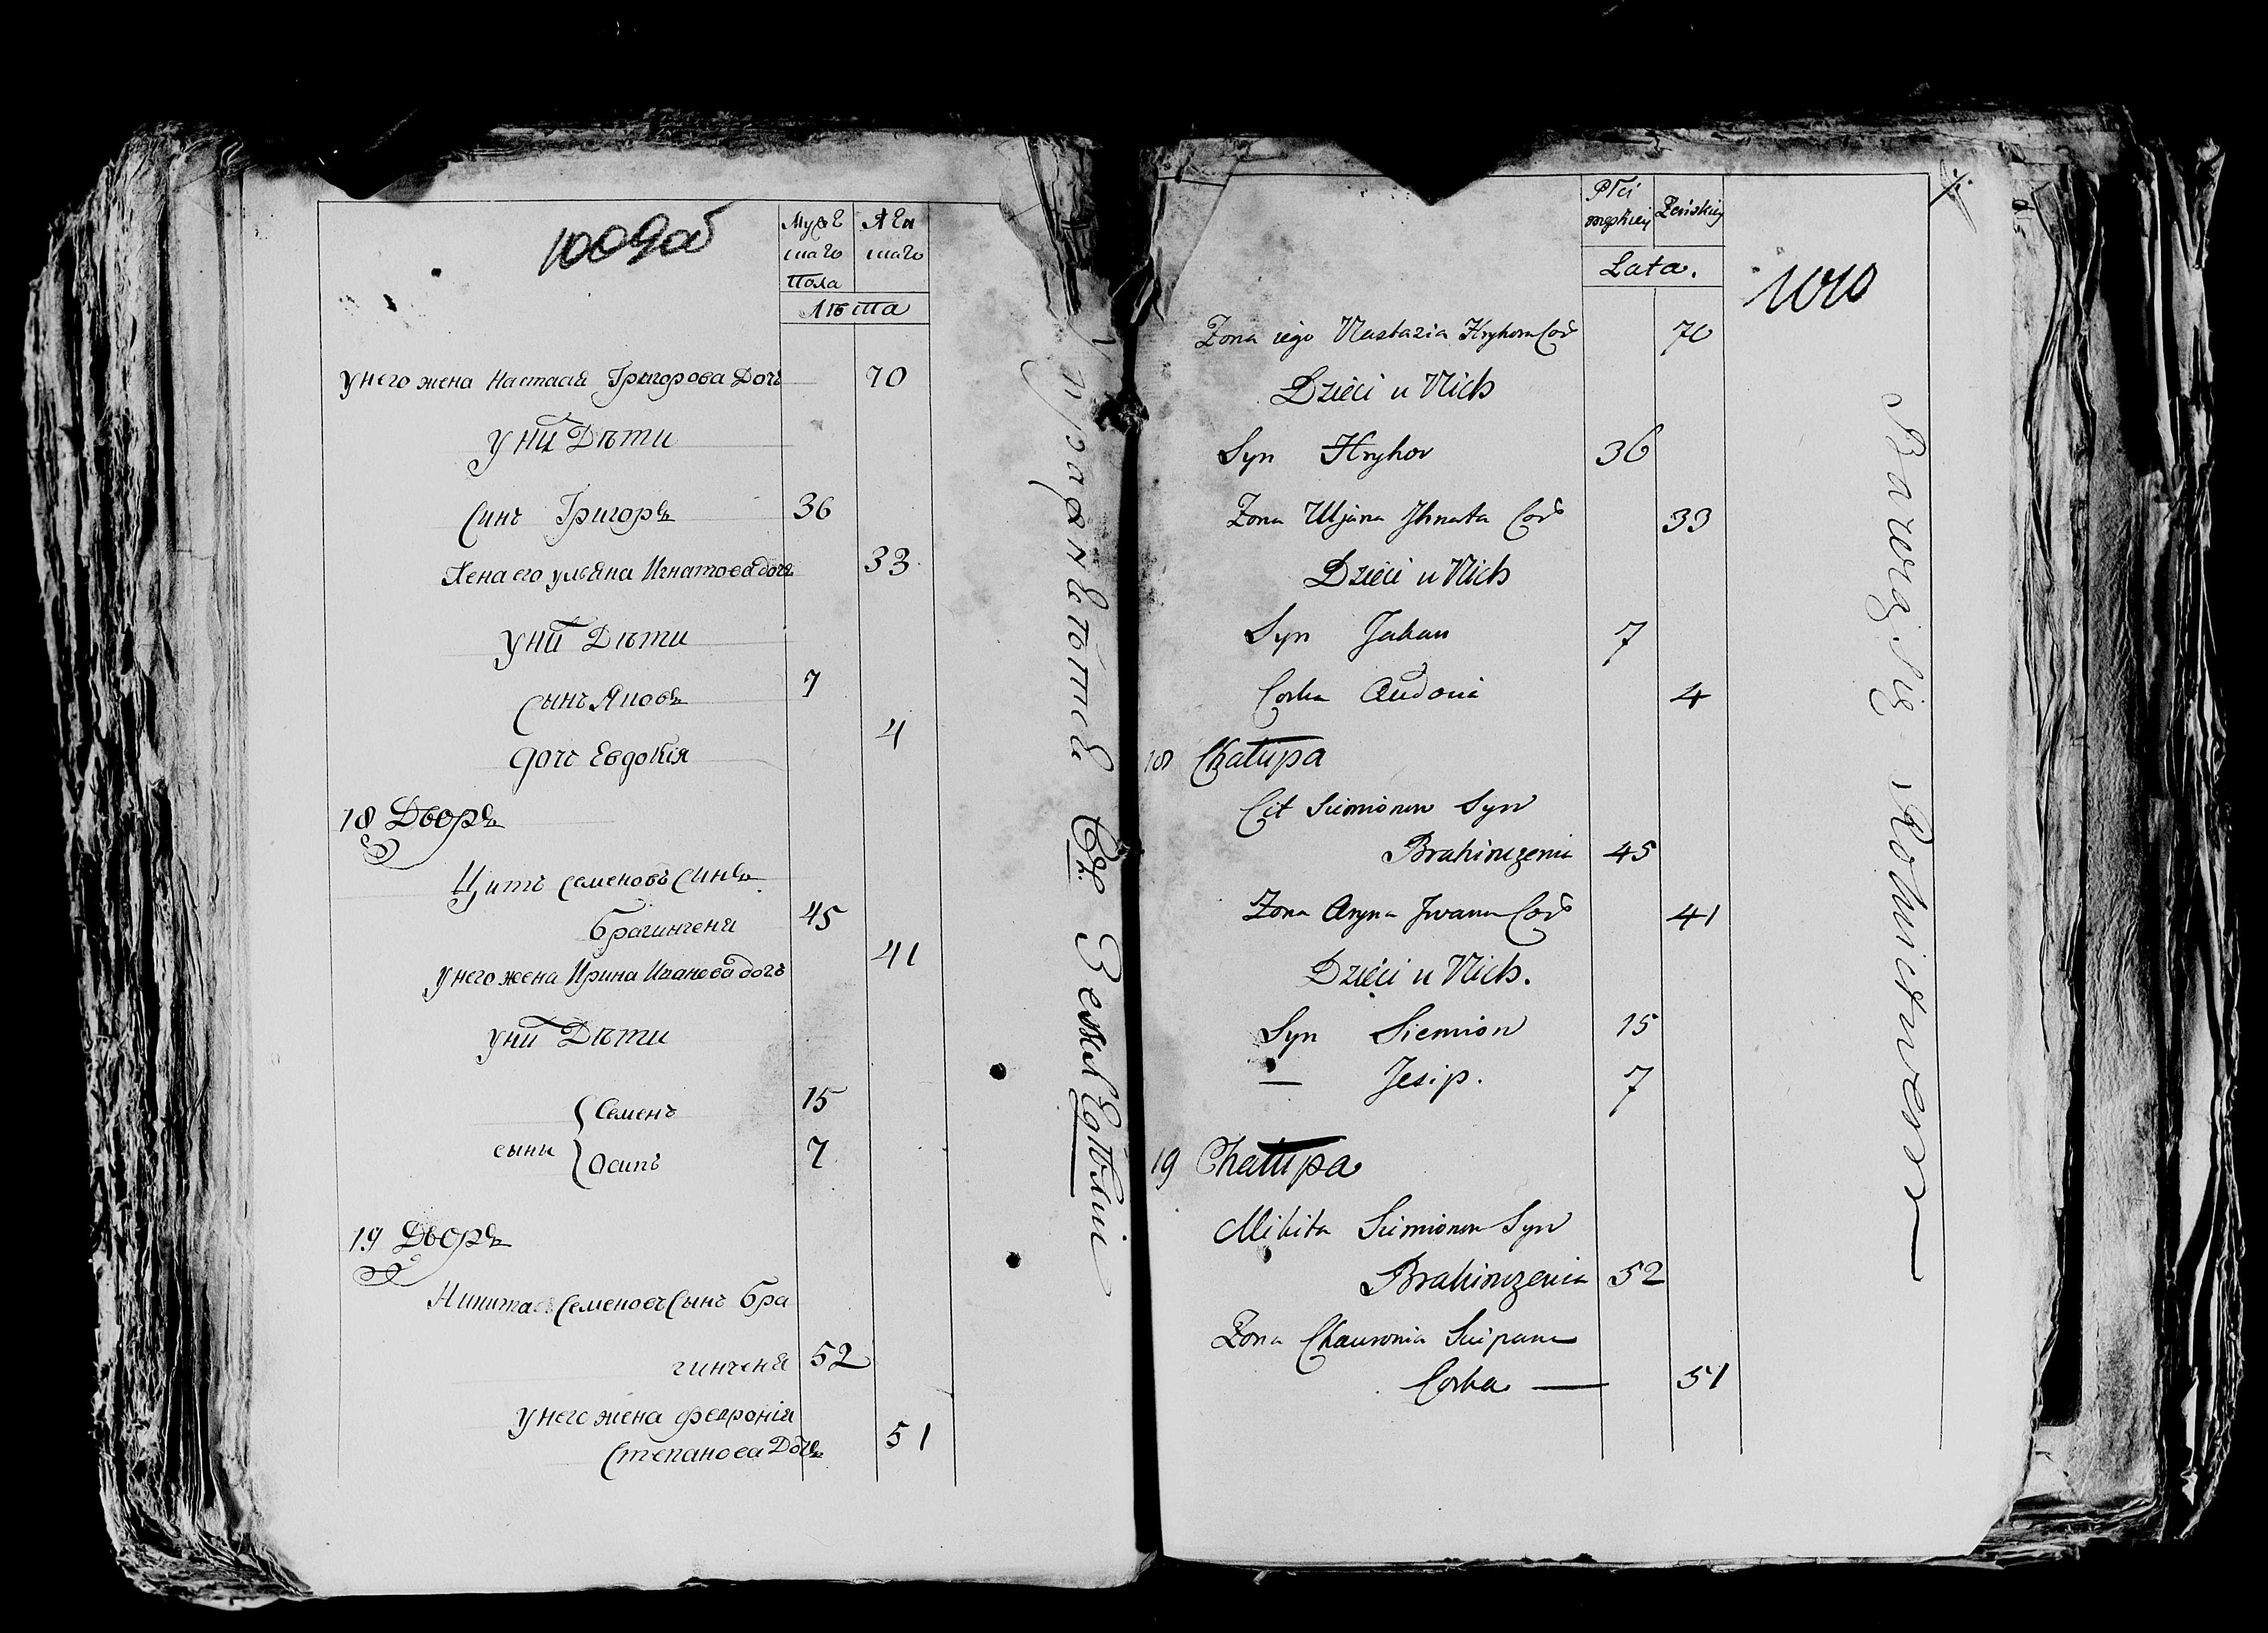 1009об
Мужес
Жен
скаго
скаго
Пола
Лѣта
У него жена Настасiя Григорова Дочь 70
У них Дѣти
Синъ Григорѣ 36
Жена его ульяна Игнатова дочь 33
У них Дѣти
Сынъ Яковъ 7
дочь Евдокія 4
18 Дворъ
Цитъ Семеновъ Синъ
Брагинченя 45
У него жена Ирина Иванова дочь 41
У них Дѣти
Семенъ 15
сыны
Осипъ 7
19 Дворъ
Никита Семеновъ Сынъ Бра
гинченя 52
У него жена Феврония
Степанова Дочь 51
Płci
męskiey Żeńskiey
Lata.
1010
Żona iego Nastazia Hryhora Cor 70
Dzieci u Nich
Syn Hryhor 36
Żona Uljana Jhnata Cor 33
Dzieci u Nich
Syn Jakau 7
Corka Audocia 4
18 Chałupa
Cit Siemionow Syn
Brahinczenia 45
Żona Aryna Jwana Cor 41
Dzieci u Nich.
Syn Siemion 15
— Jesip. 7
19 Chałupa
Mikita Siemionow Syn
Brahinczenia 52
Żona Chauronia Sciepana
Corka — 51